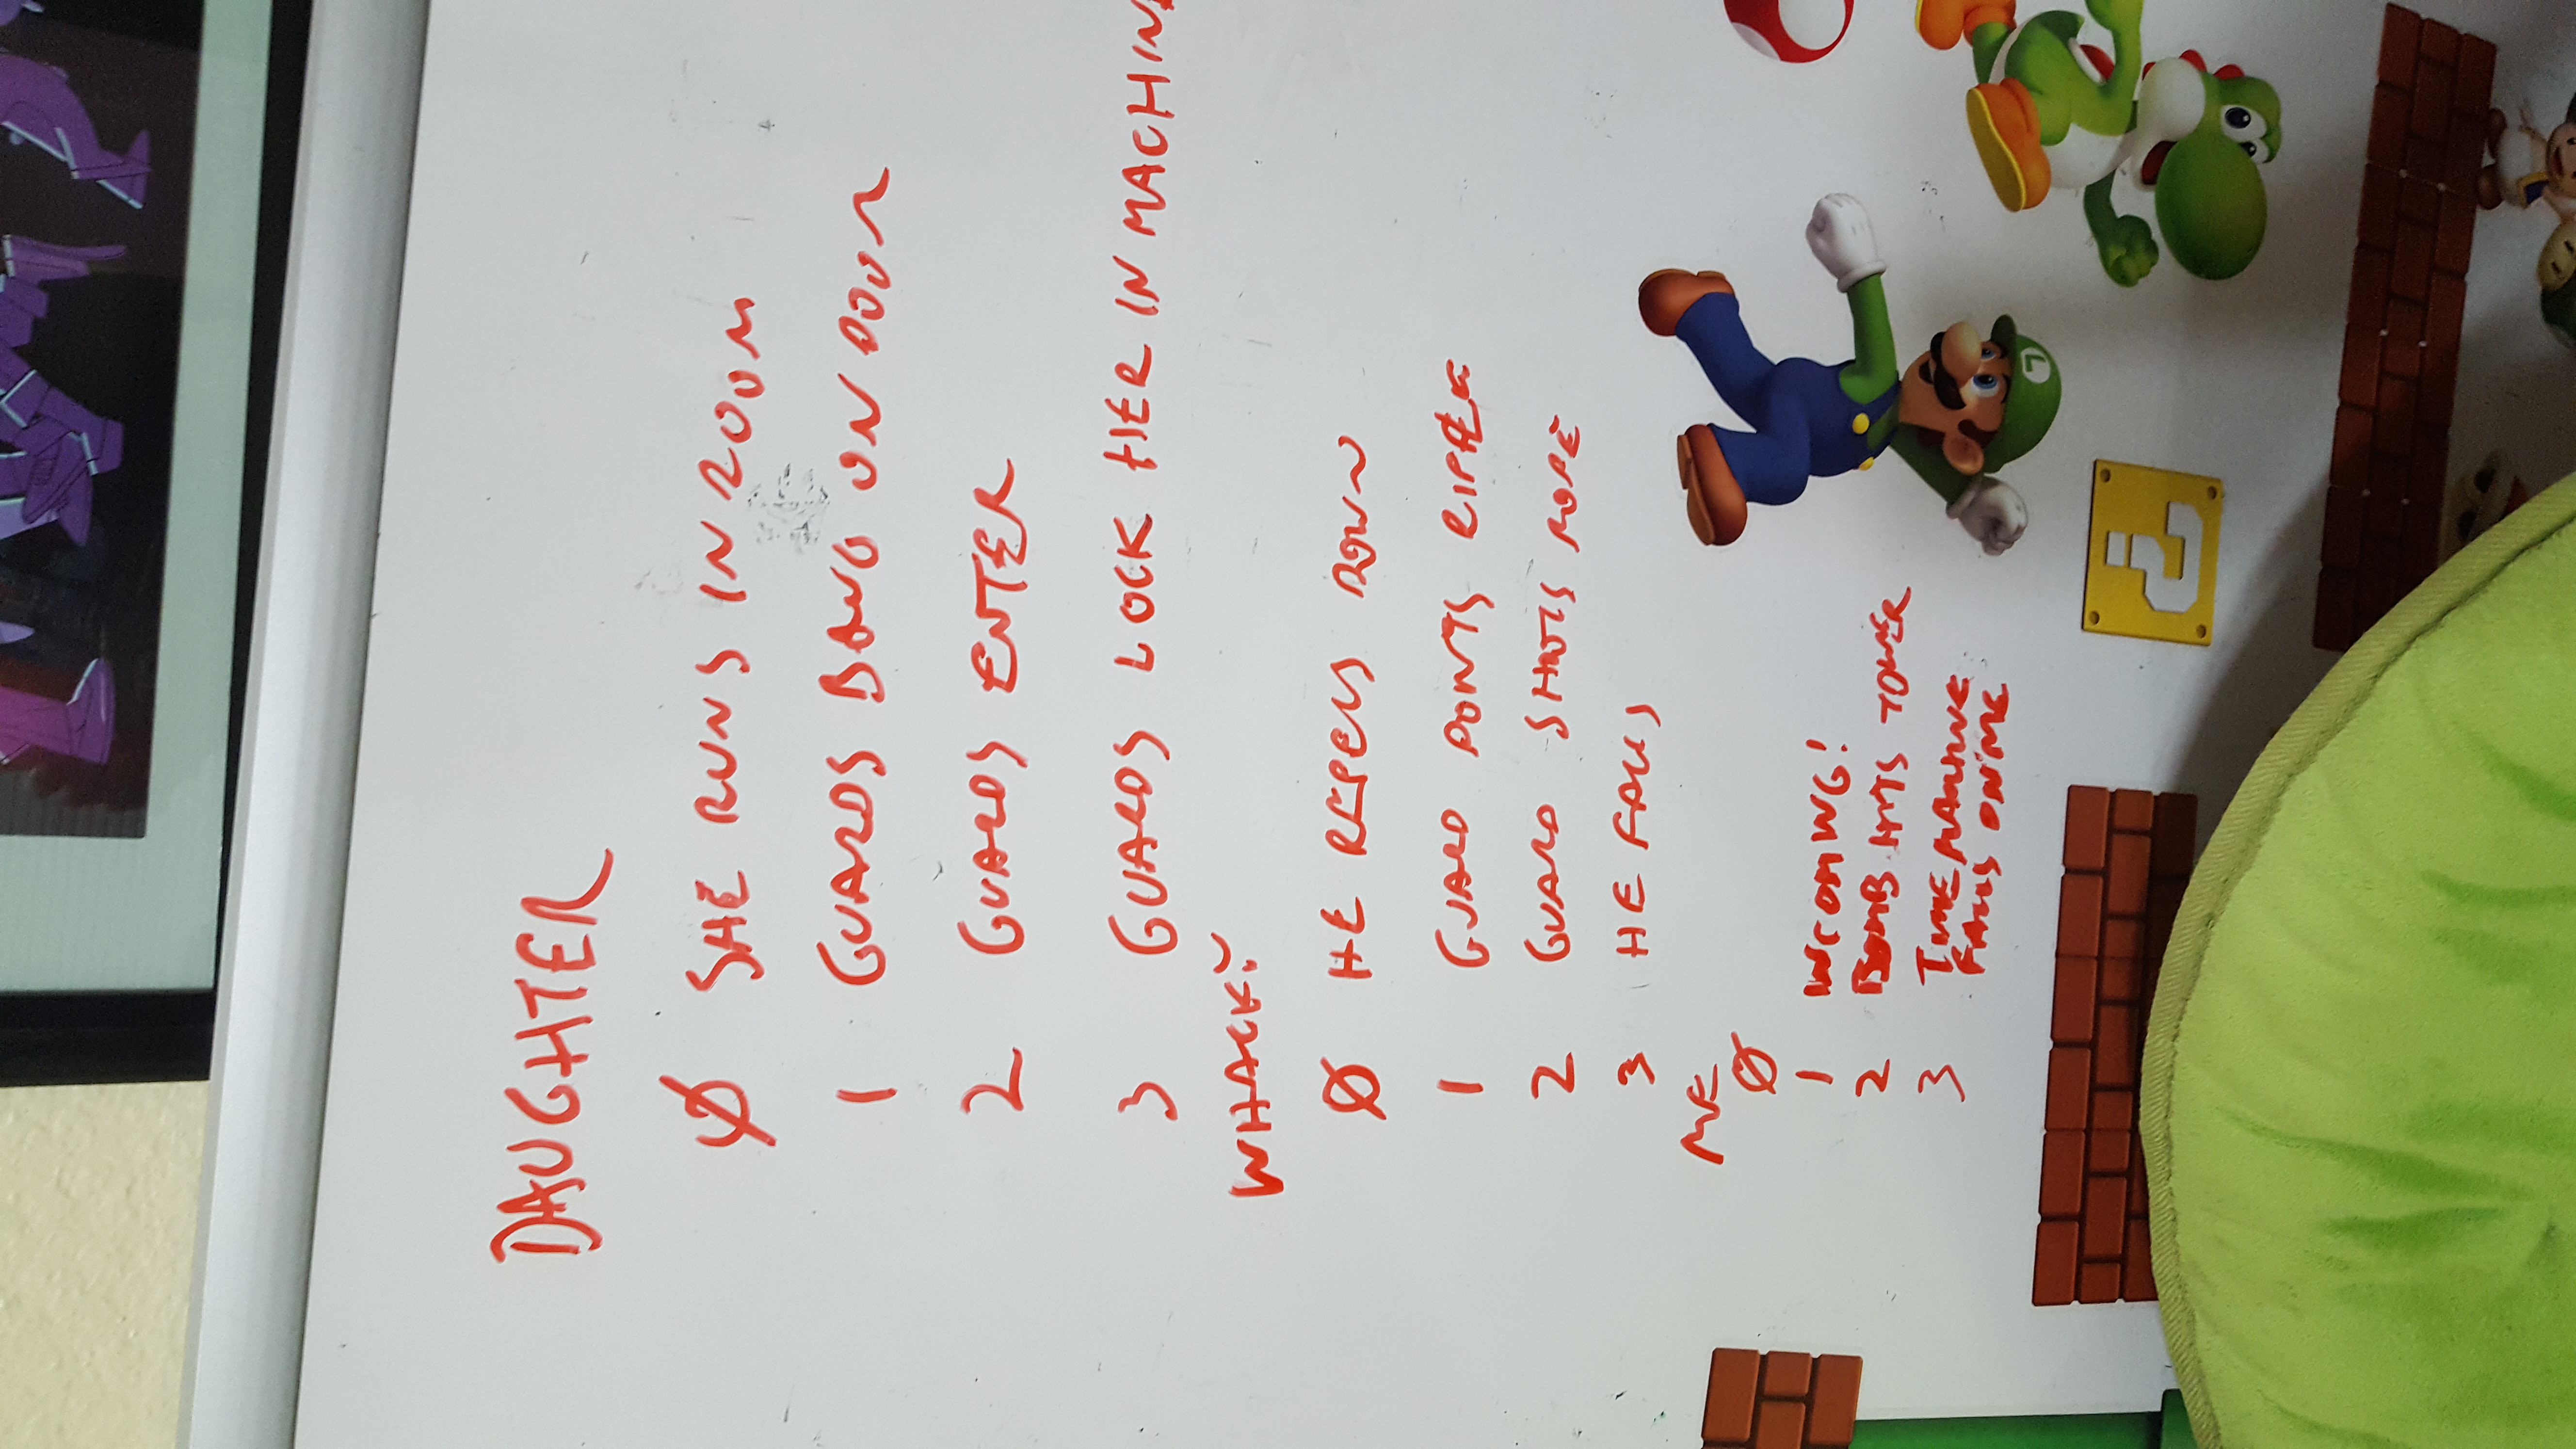 DAUGHTER
Ø SHE RUNS IN ROOM
1 GUARDS BANG ON DOOR
2 GUARDS ENTER
3 GUARDS LOCK HER IN MACHINE
WHACK:
Ø HE REPELS DOWN
1 GUARD POINTS RIFLE
2 GUARD SHOOTS ROPE
3 HE FALLS
ME
Ø
1 INCOMING!
2 BOMB HITS TOWER
3 TIME MACHINE
FALLS ON ME
L
?